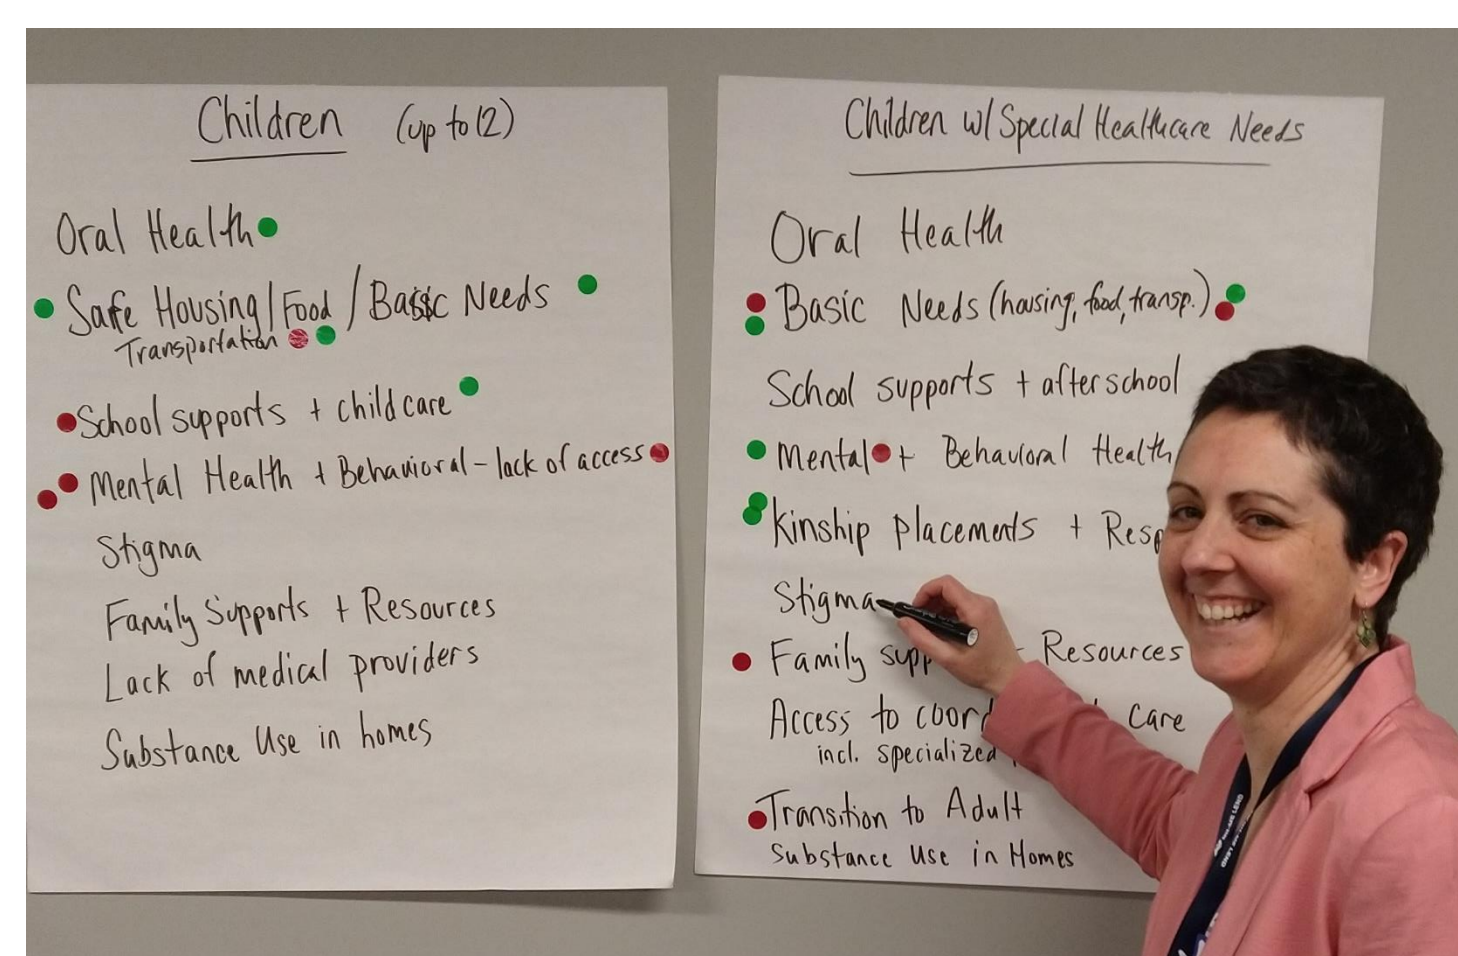 Children (up to 12)
Oral Health
Safe Housing/Food/Basic Needs
Transportation
School supports + childcare
Mental Health + Behavioral - lack of access
Stigma
Family Supports + Resources
Lack of medical providers
Substance Use in homes
Children w/ Special Healthcare Needs
Oral Health
Basic Needs (housing, food, transp.)
School supports + afterschool
Mental + Behavioral Health
Kinship placements +
Stigma
Family + Resources
Access to care
incl. specialized
Transition to Adult
Substance Use in Homes